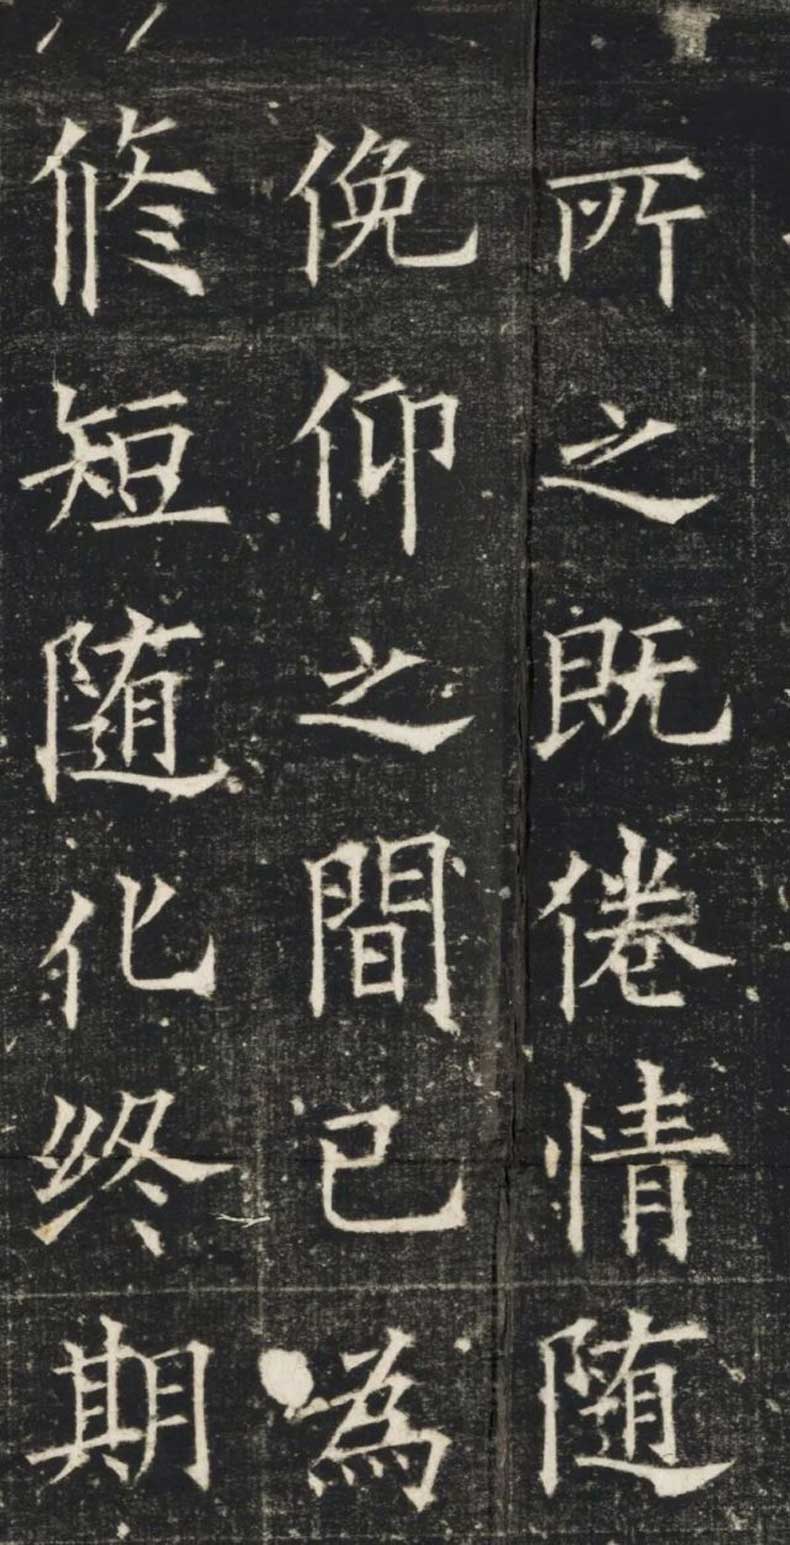 所之既倦情随
俛仰之間已為
脩短随化终期